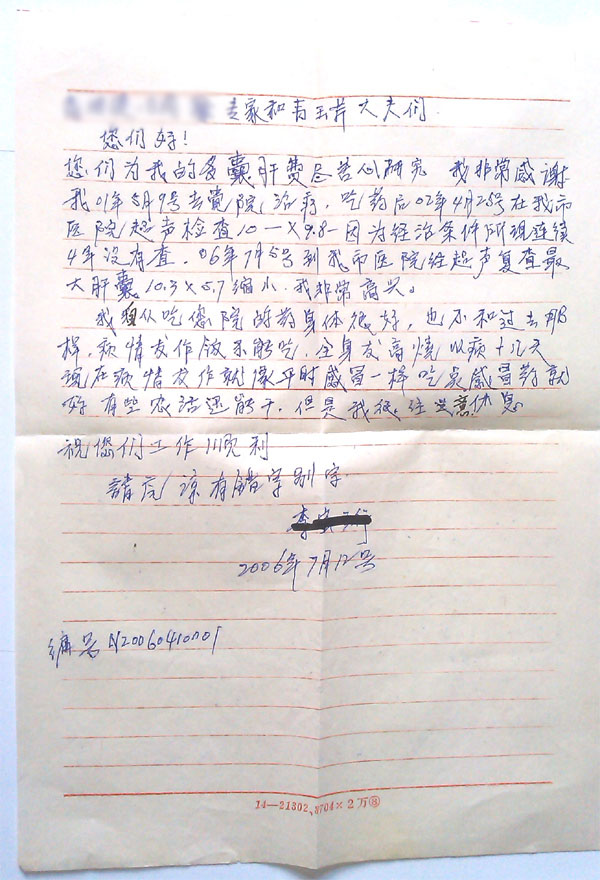 专家和青玉芹大夫们
您们好!
您们为我的多囊肝费尽苦心研究 我非常感谢
我01年5月9号去贵院治病,吃药后02年4月25号在我市
医院超声检查10—×9.8-因为经治条件所现连续
4年没有查.06年7月5号到我市医院经超声复查最
大肝囊10.3×5.7缩小.我非常高兴。
我自从吃您院的药身体很好,也不和过去那
样.病情发作饭不能吃.全身发高烧以病十几天
现在病情发作就像平时感冒一样吃点感冒药就
好有些农活还能干.但是我很注意休息
祝您们工作顺利
請原谅有错字别字.
2006年7月12号
编号N20060410001
14—21302、8704×2万⑧